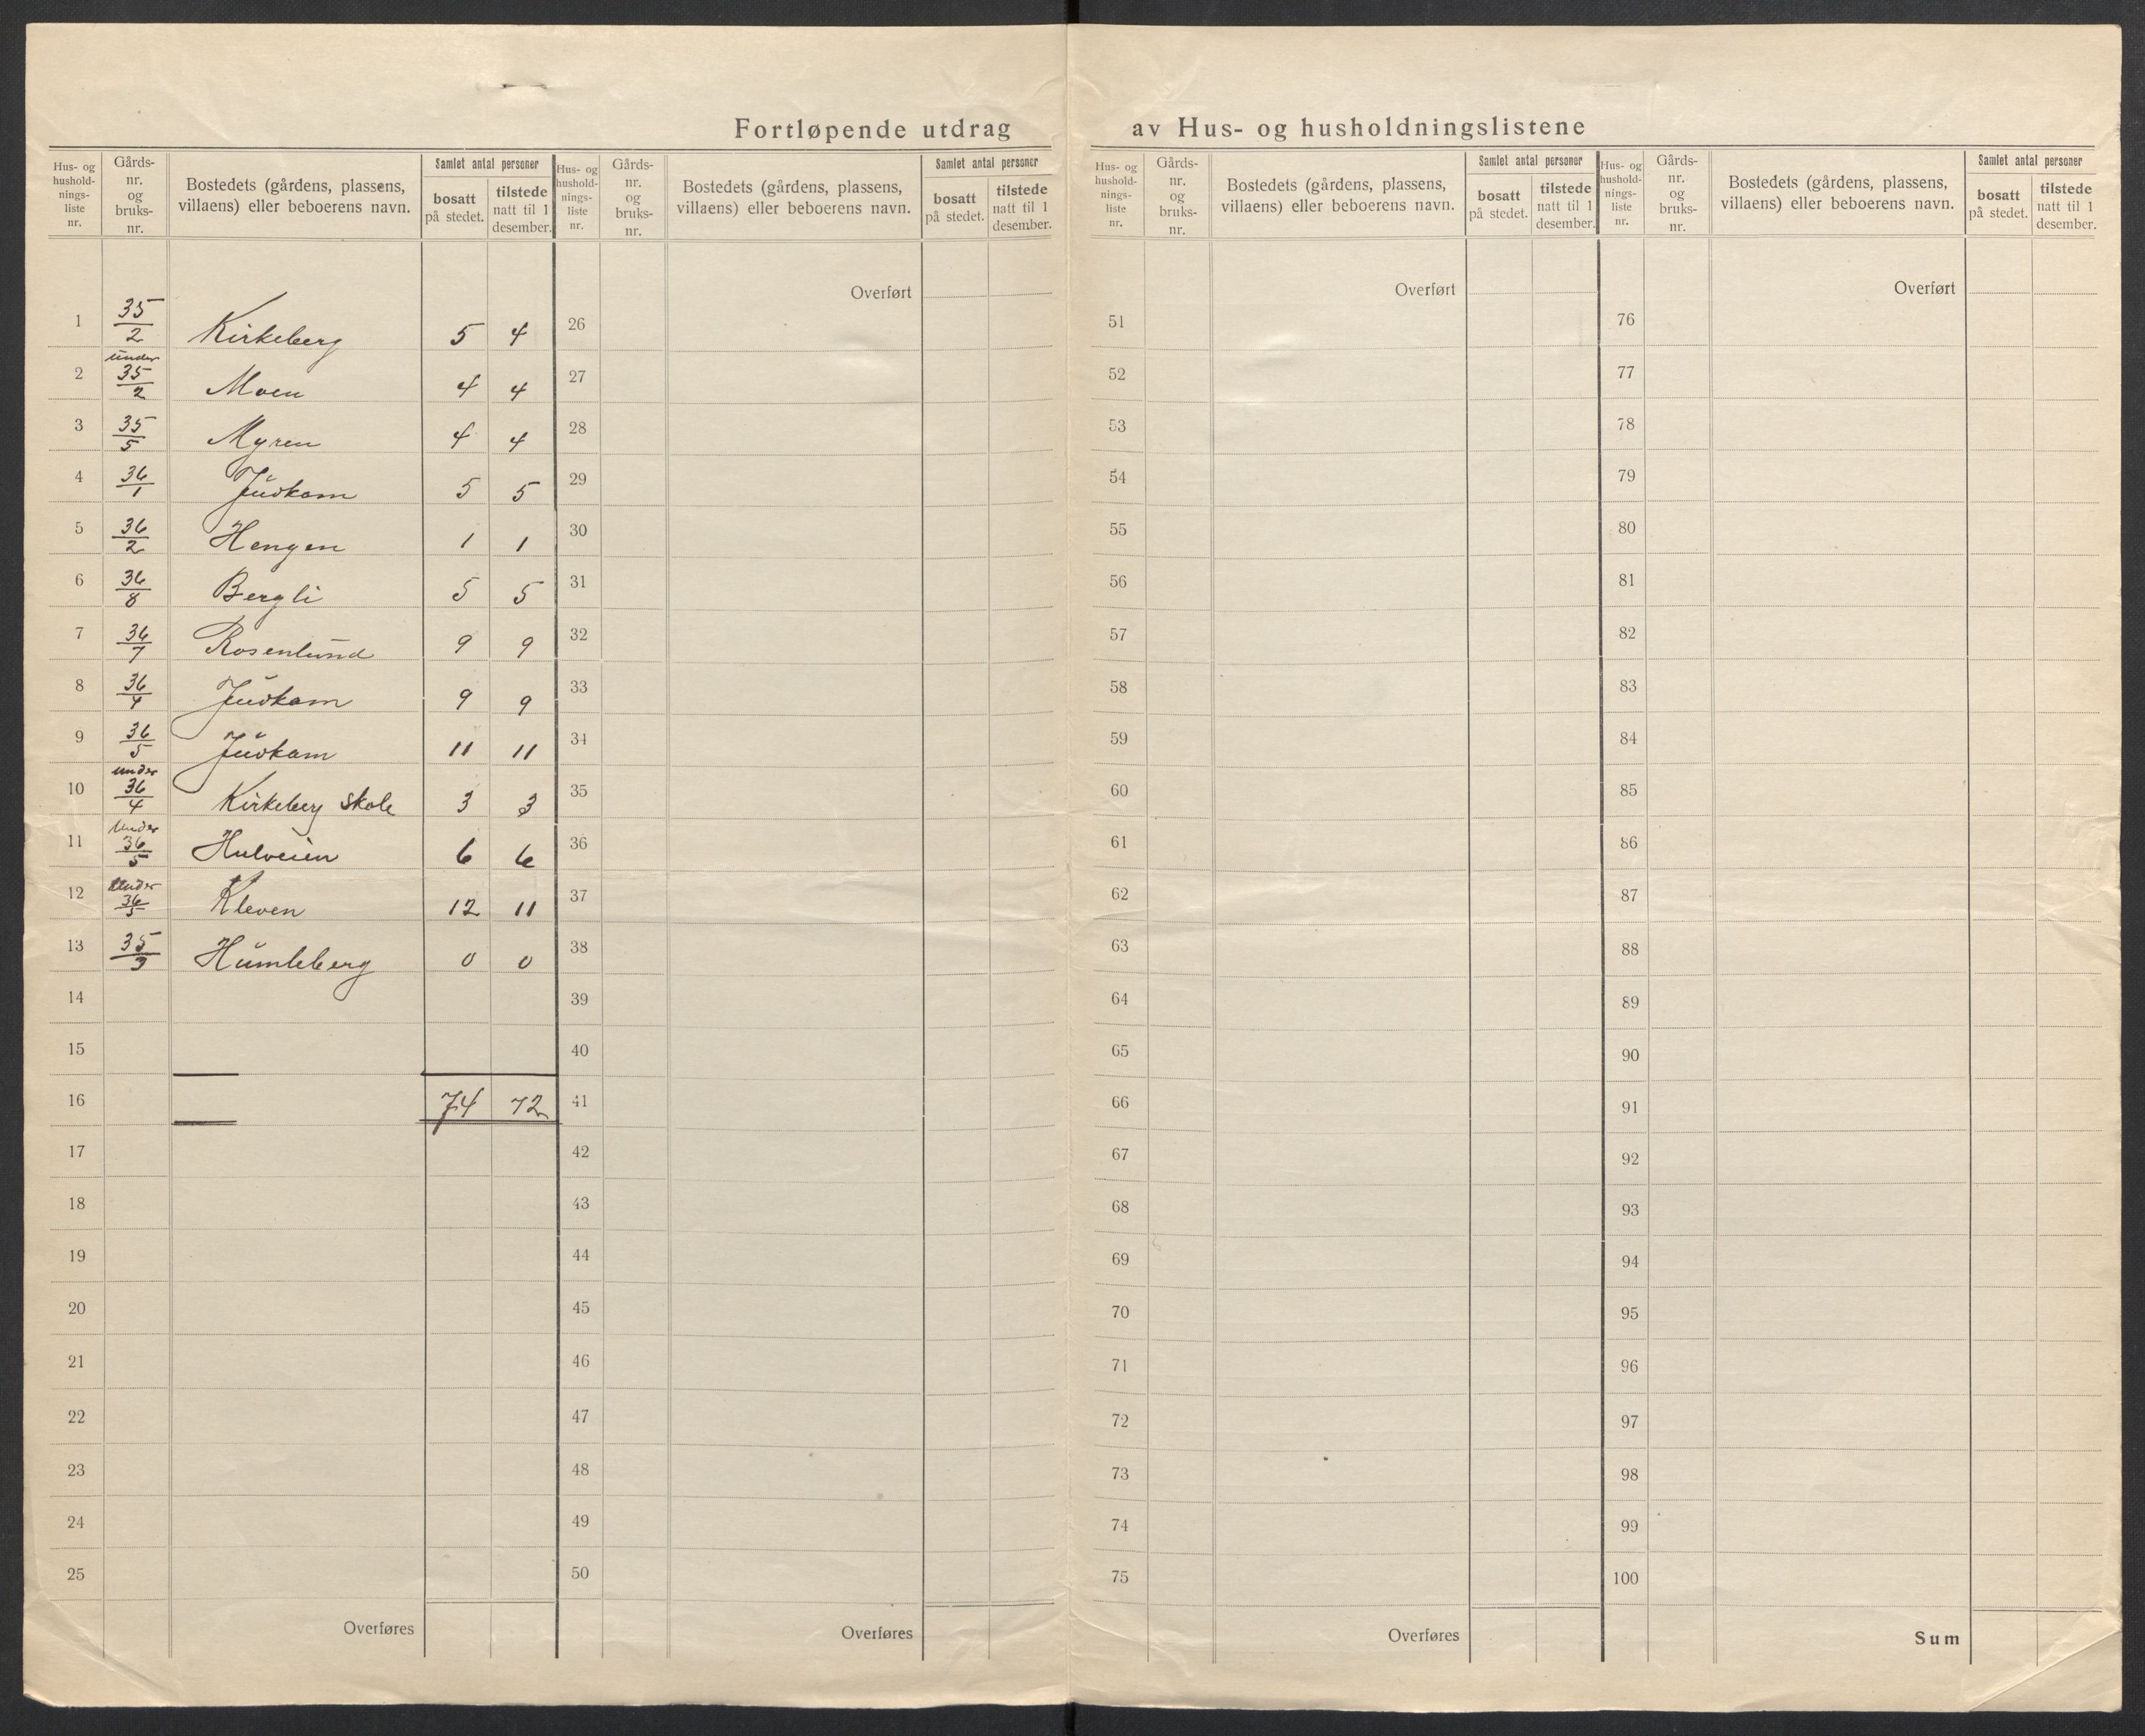 Fortløpende utdrag av Hus- og husholdningslistene
Hus- og hushold- nings- liste nr. Gårds- nr. og bruks- nr. Bostedets (gårdens, plassens, villaens) eller beboerens navn. Samlet antal personer bosatt på stedet. tilstede natt til 1 desember.
1 35/2 Kirkeberg 5 4
2 under 35/2 Moen 4 4
3 35/5 Myren 4 4
4 36/1 5 5
5 36/2 Hengen 1 1
6 36/8 Bergli 5 5
7 36/7 Rosenlund 9 9
8 36/4 9 9
9 36/5 11 11
10 under 36/4 Kirkeberg skole 3 3
11 Under 36/5 Hulveien 6 6
12 Under 36/5 Kleven 12 11
13 35/3 Humleberg 0 0
14
15
16 74 72
17
18
19
20
21
22
23
24
25
Overføres
Hus- og hushold- nings- liste nr. Gårds- nr. og bruks- nr. Bostedets (gårdens, plassens, villaens) eller beboerens navn. Samlet antal personer bosatt på stedet. tilstede natt til 1 desember.
Overført
26
27
28
29
30
31
32
33
34
35
36
37
38
39
40
41
42
43
44
45
46
47
48
49
50
Overføres
Hus- og hushold- nings- liste nr. Gårds- nr. og bruks- nr. Bostedets (gårdens, plassens, villaens) eller beboerens navn. Samlet antal personer bosatt på stedet. tilstede natt til 1 desember.
Overført
51
52
53
54
55
56
57
58
59
60
61
62
63
64
65
66
67
68
69
70
71
72
73
74
75
Overføres
Hus- og hushold- nings- liste nr. Gårds- nr. og bruks- nr. Bostedets (gårdens, plassens, villaens) eller beboerens navn. Samlet antal personer bosatt på stedet. tilstede natt til 1 desember.
Overført
76
77
78
79
80
81
82
83
84
85
86
87
88
89
90
91
92
93
94
95
96
97
98
99
100
Sum